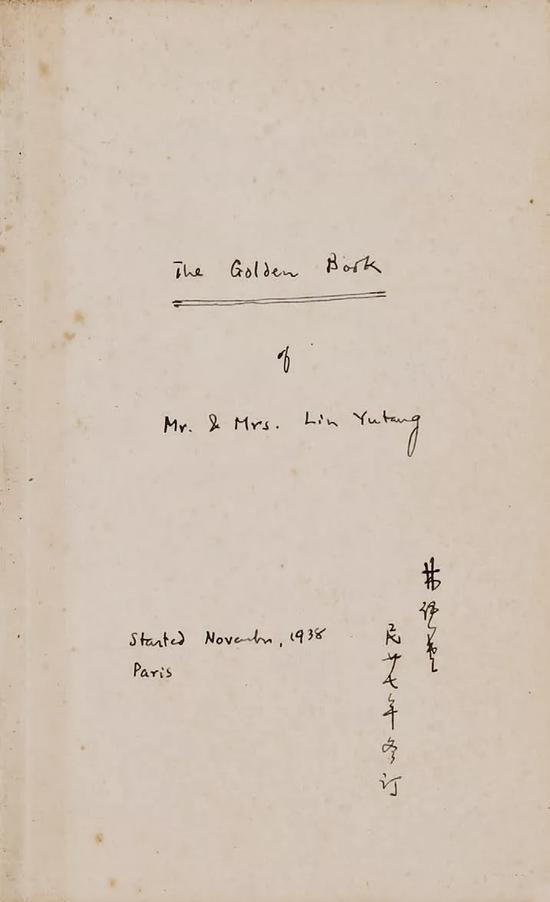 The Golden Book
of
Mr. & Mrs. Lin Yutang
Started November, 1938
Paris
民廿七年冬订